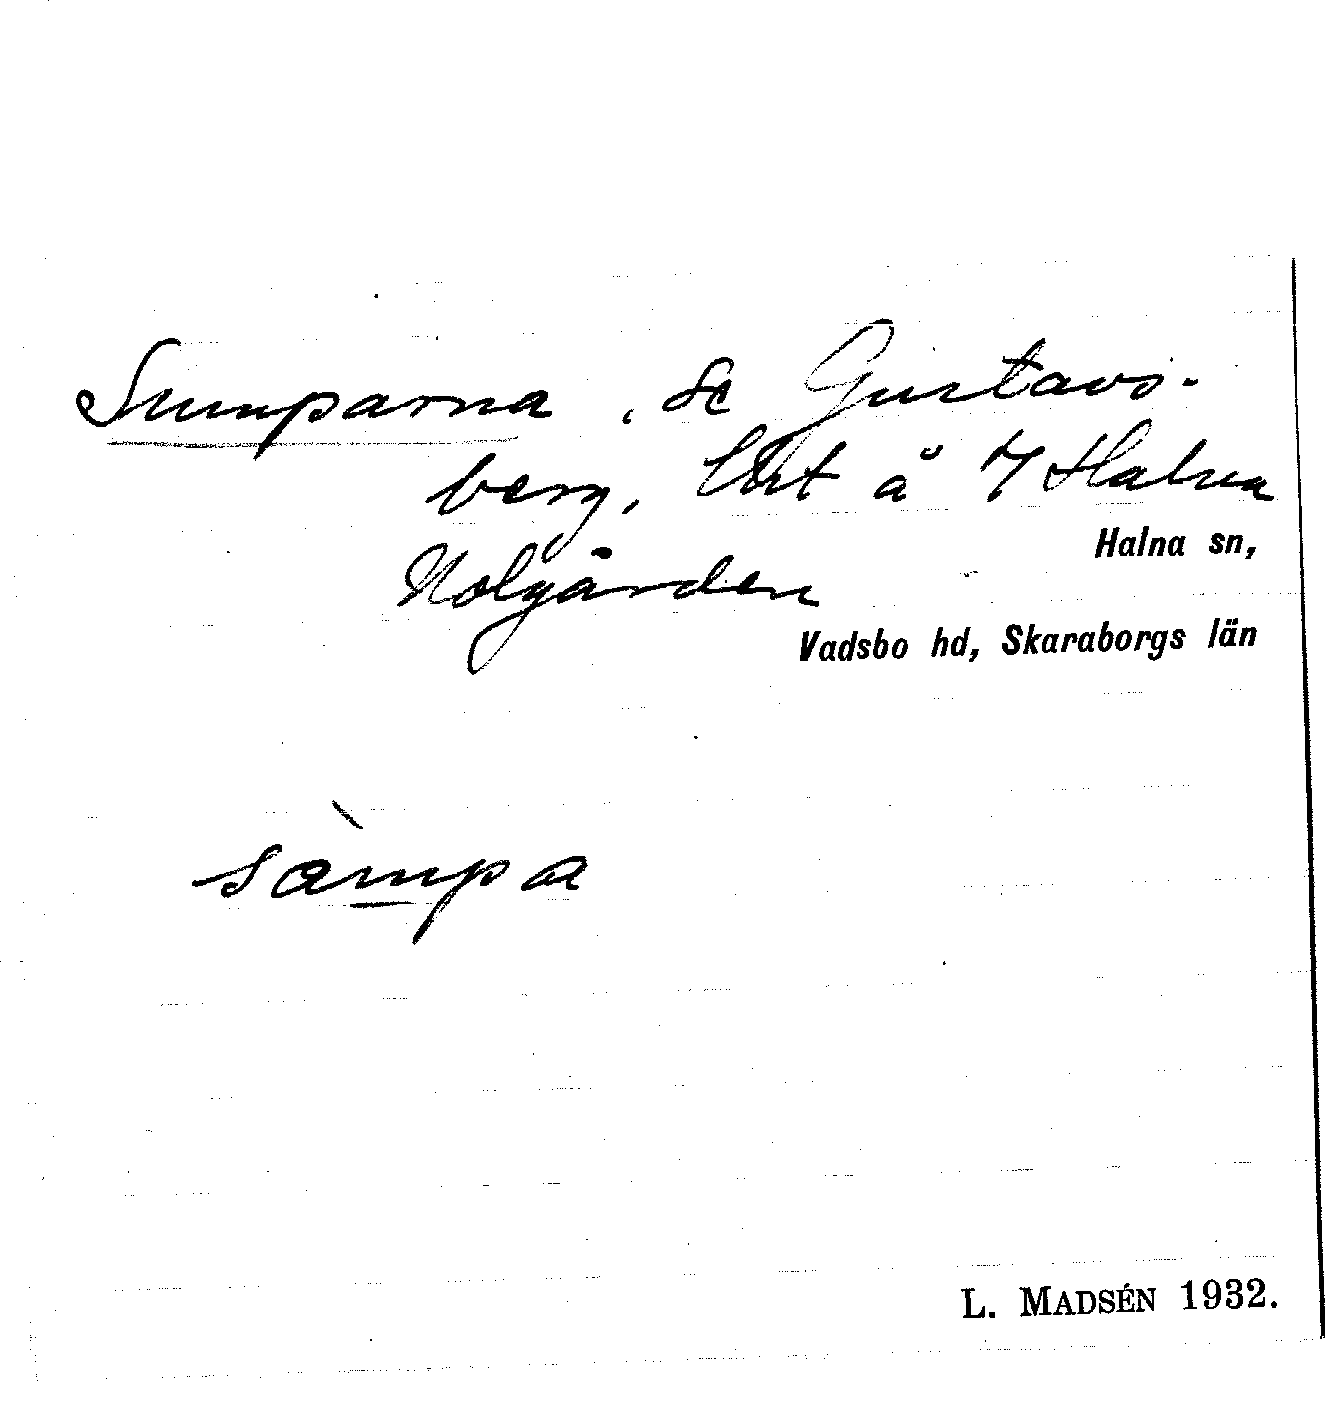 Sumparna, se Gustavs-
berg, lht å 7 Halna
Holgården
Halna sn,
Vadsbo hd, Skaraborgs län
sàmpa
L. MADSÉN 1932.